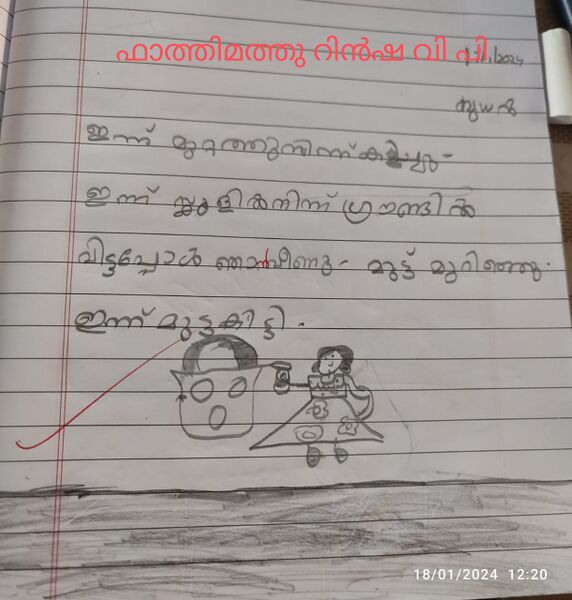 ഫാത്തിമത്തു റിൻഷ വി പി
1/2024
ബുധൻ
ഇന്ന് മുറ്റത്തുനിന്ന് കളിച്ചു-
ഇന്ന് സ്കൂളിൽനിന്ന് ഗ്രൗണ്ടിൽ
വിട്ടപ്പോൾ ഞാൻവീണു- മുട്ട് മുറിഞ്ഞു.
ഇന്ന് മുട്ടകിട്ടി.
18/01/2024 12:20